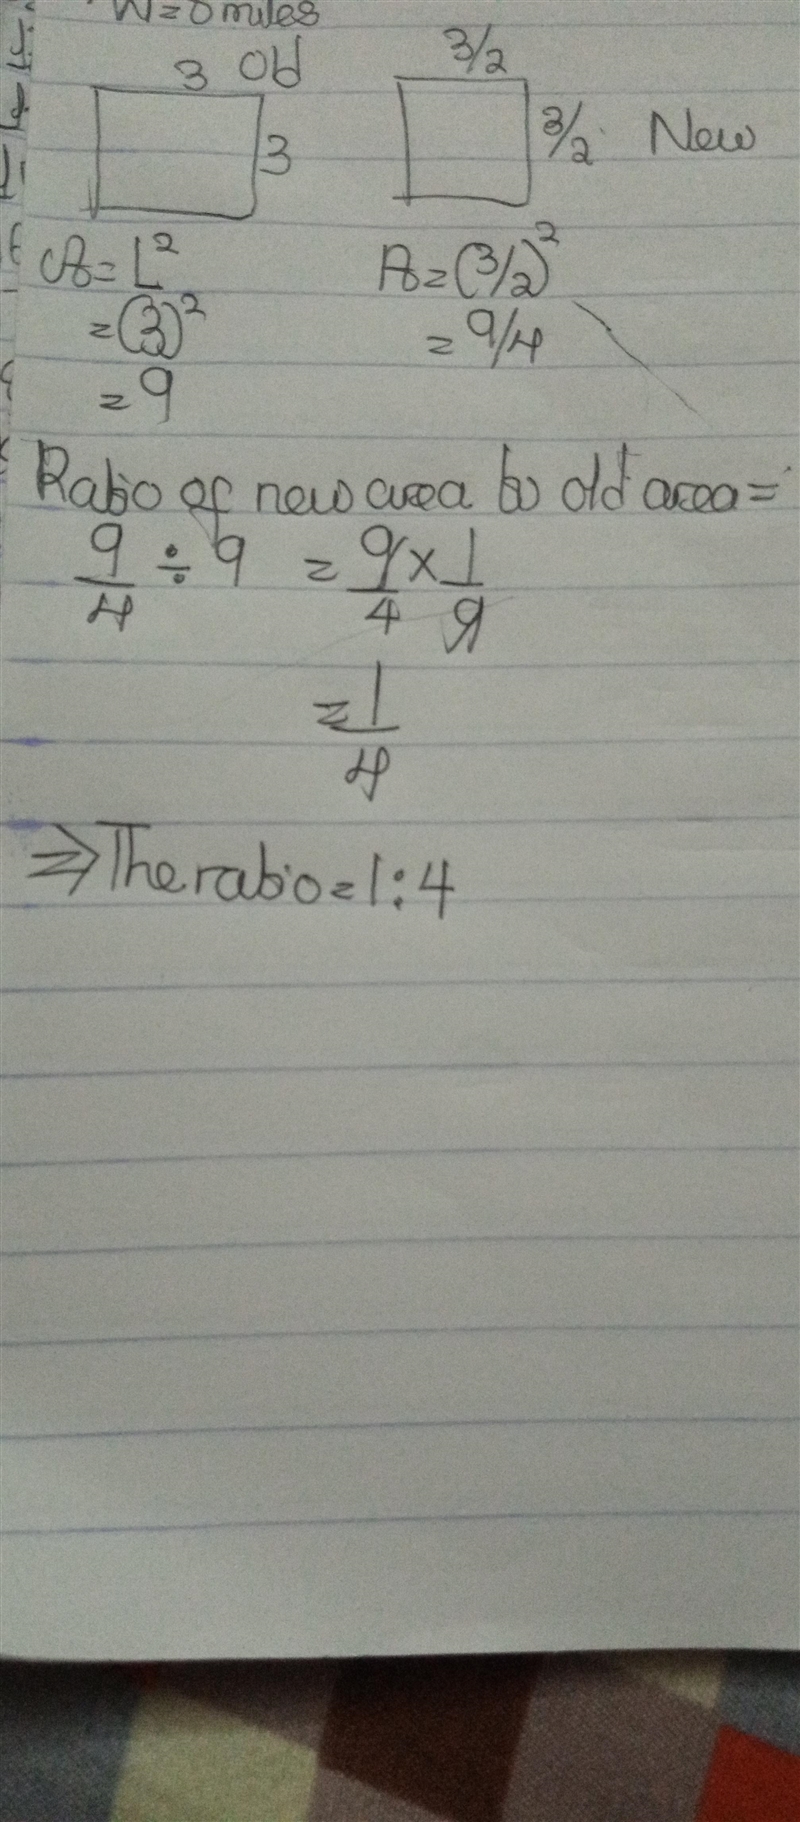 W=8 miles
3 Old
3
3/2
3/2 New
A=L²
=(3)²
=9
A=(3/2)²
=9/4
Ratio of new area to old area=
9/4 ÷ 9 = 9/4 × 1/9
=1/4
⇒The ratio=1:4